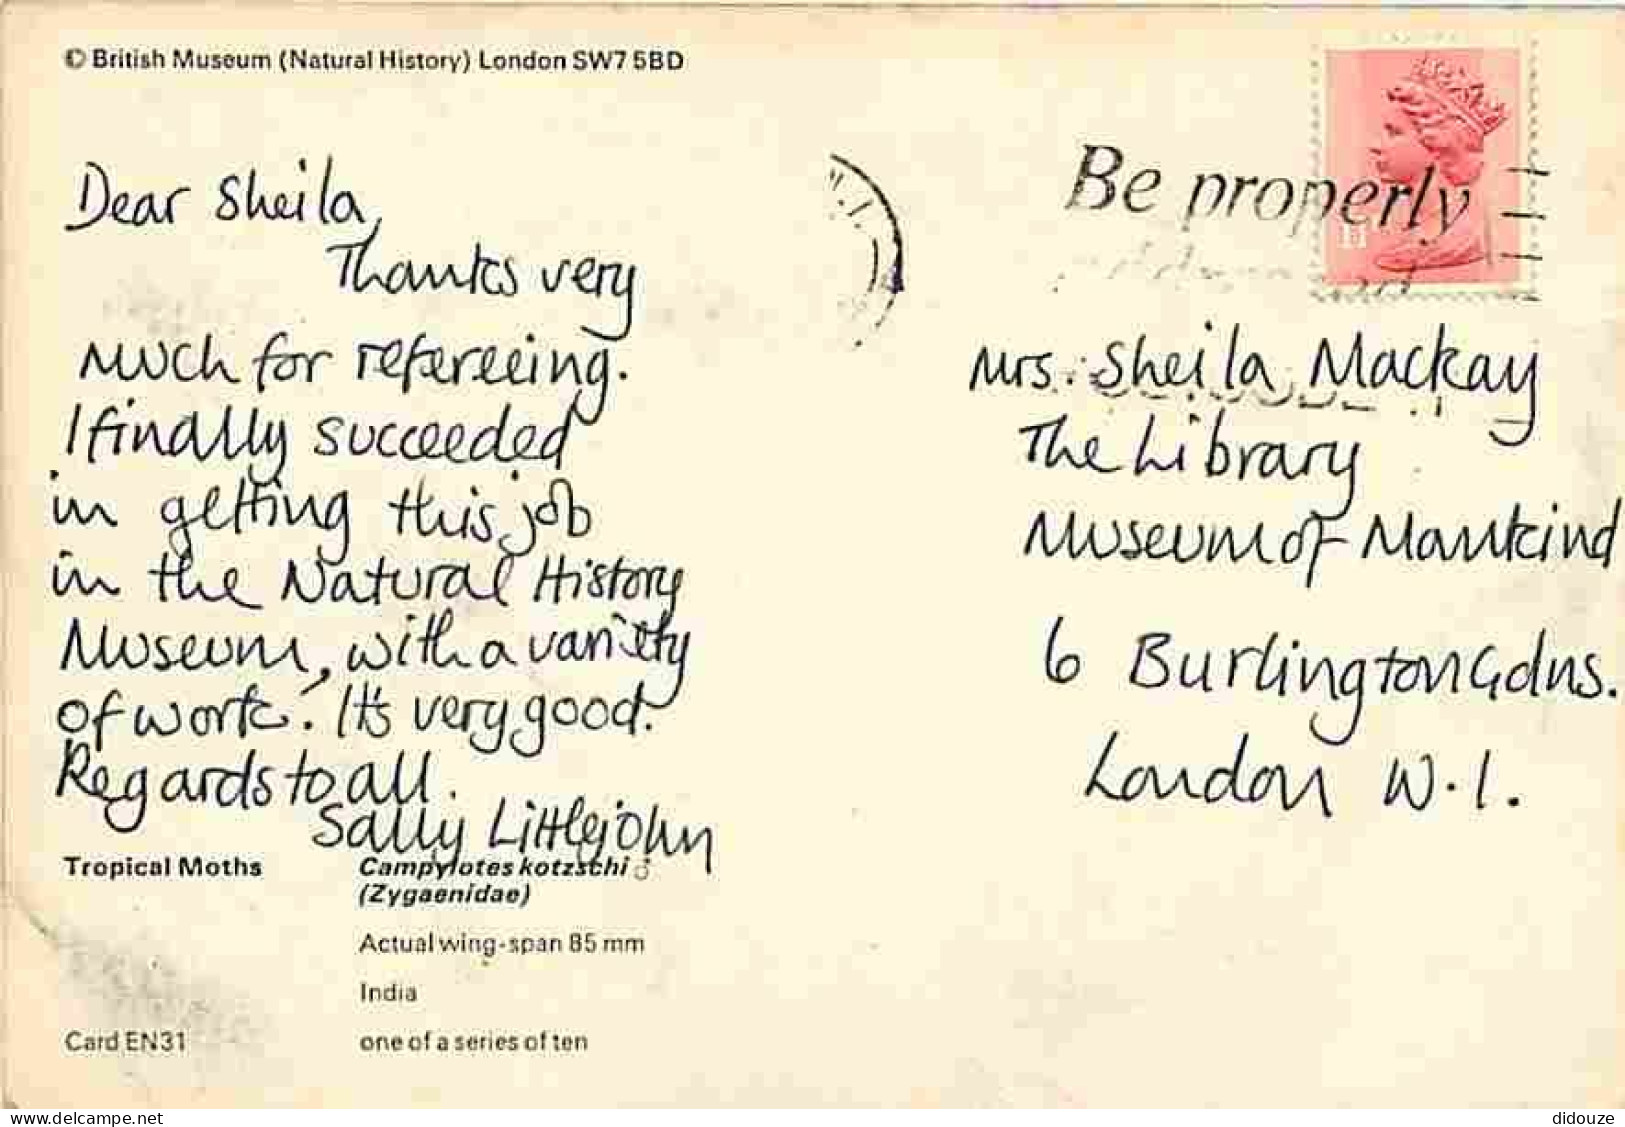 © British Museum (Natural History) London SW7 5BD
Be properly
Dear Sheila,
Thanks very
much for refereeing.
I finally succeeded
in getting this job
in the Natural History
Museum, with a variety
of work. It's very good.
Regards to all.
Sally Littlejohn
Mrs. Sheila Mackay
The Library
Museum of Mankind
6 Burlington Gdns.
London W.1.
Tropical Moths
Campylotes kotzschi ♂
(Zygaenidae)
Actual wing-span 85 mm
India
Card EN31
one of a series of ten
delcampe.net
didouze